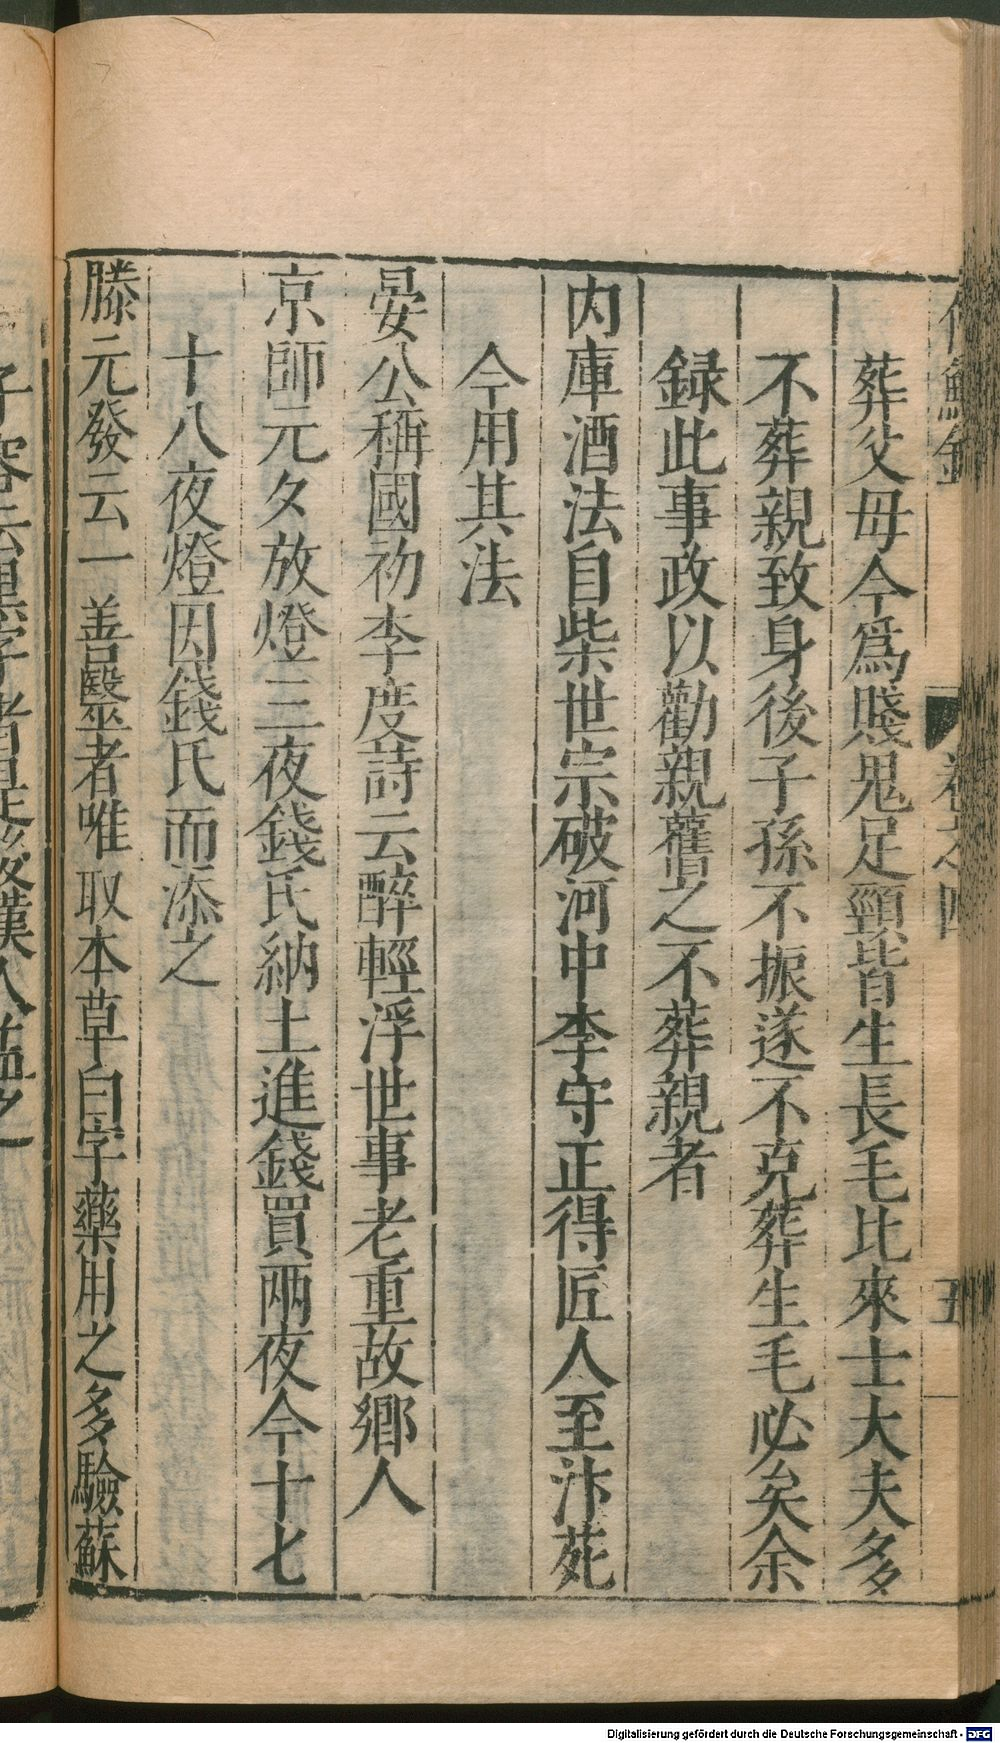 卷之四
五
葬父母今爲賤鬼足頸皆生長毛比來士大夫多
不葬親致身後子孫不振遂不克葬生毛必矣余
録此事政以勸親舊之不葬親者
内庫酒法自柴世宗破河中李守正得匠人至汴苑
今用其法
晏公稱國初李度詩云醉輕浮世事老重故鄉人
京師元夕放燈三夜錢氏納土進錢買兩夜今十七
十八夜燈因錢氏而添之
滕元發云一善醫者唯取本草白字藥用之多驗蘇
子容云黑字者是後漢人益之
Digitalisierung gefördert durch die Deutsche Forschungsgemeinschaft - DFG